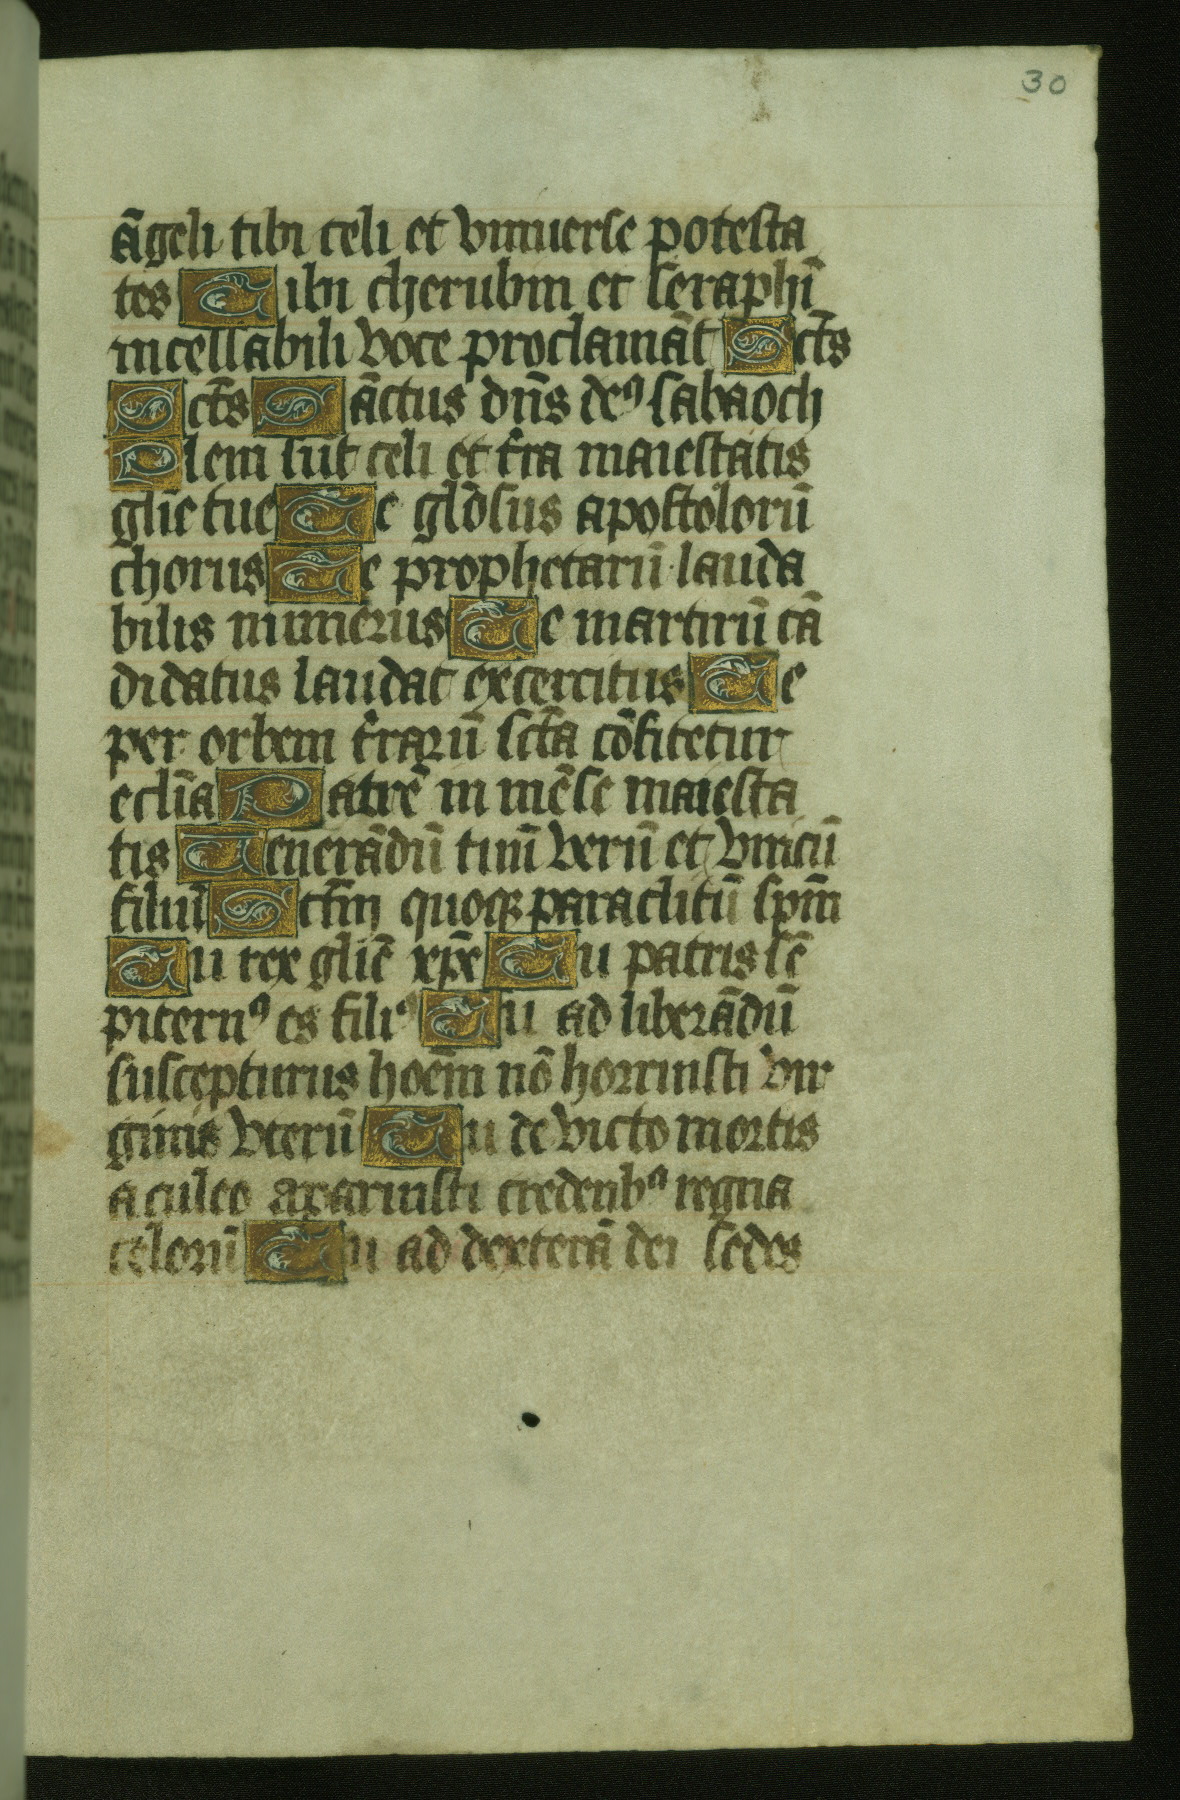 30
āgeli tibi celi et vniuerse potesta
tes Tibi cherubin et seraphī
incessabili voce proclamāt Sct̄s
Sct̄s Sāctus dn̄s deꝰ sabaoch
Pleni sūt celi et t̄ra maiestatis
glīe tue Te glōsus apostolorū
chorus Te prophetarū lauda
bilis numerus Te martirū cā
didatus laudat excercitus Te
per orbem t̄rarū sct̄a cōfitetur
ecclīa Patrē in mēse maiesta
tis Uenerādū tuū verū et vnicū
filiū Sct̄m quoqꝫ paraclitū spm̄
Tu rex glīe xpē Tu patris sē
piternꝰ es filiꝰ Tu ad liberādū
suscepturus hoēm nō horruisti vir
ginis vterū Tu de victo mortis
a culeo aparuisti credentibꝰ regna
celorū Tu ad dexterā dei sedes